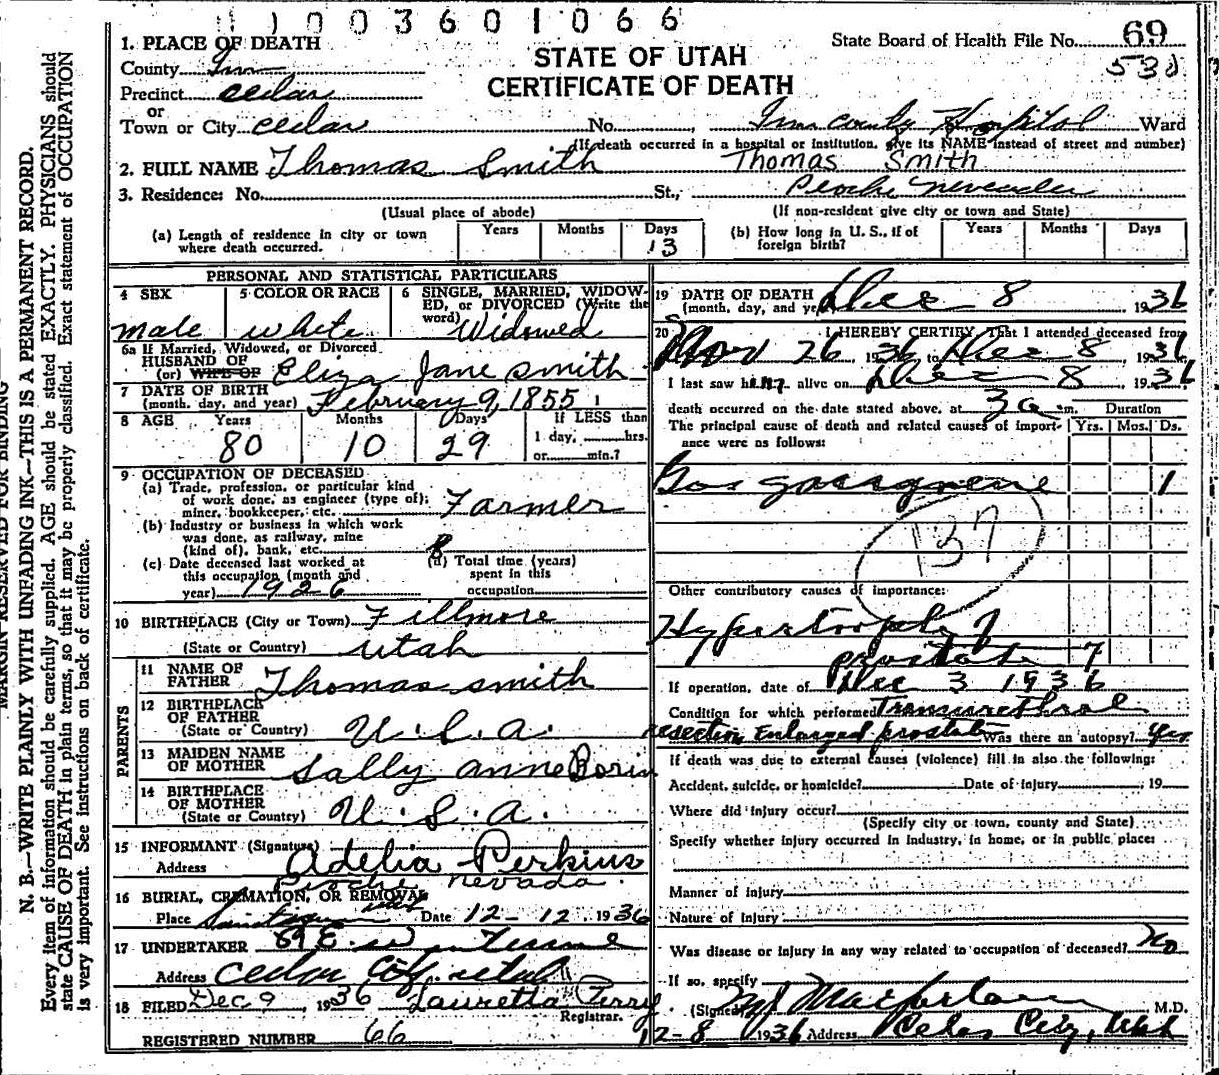 1003601066
1. PLACE OF DEATH
STATE OF UTAH
CERTIFICATE OF DEATH
State Board of Health File No. 69
530
County
Precinct Cedar
or
Town or City Cedar No. Iron County Hospital Ward
(If death occurred in a hospital or institution, give its NAME instead of street and number)
2. FULL NAME Thomas Smith Thomas Smith
3. Residence: No. St., Pioche Nevada
(Usual place of abode) (If non-resident give city or town and State)
(a) Length of residence in city or town where death occurred. Years Months Days 13
(b) How long in U. S., if of foreign birth? Years Months Days
PERSONAL AND STATISTICAL PARTICULARS
4 SEX male
5 COLOR OR RACE white
6 SINGLE, MARRIED, WIDOWED, or DIVORCED (Write the word) Widowed
6a If Married, Widowed, or Divorced
HUSBAND OF
(or) WIFE OF Eliza Jane Smith
7 DATE OF BIRTH
(month, day, and year) February 9, 1855
8 AGE Years 80 Months 10 Days 29 If LESS than
1 day, hrs.
or min.?
9 OCCUPATION OF DECEASED
(a) Trade, profession, or particular kind
of work done, as engineer (type of);
miner, bookkeeper, etc. Farmer
(b) Industry or business in which work
was done, as railway, mine
(kind of), bank, etc.
(c) Date deceased last worked at
this occupation (month and
year) 1926
(d) Total time (years)
spent in this
occupation
10 BIRTHPLACE (City or Town) Fillmore
(State or Country) Utah
PARENTS
11 NAME OF
FATHER Thomas Smith
12 BIRTHPLACE
OF FATHER
(State or Country) U.S.A.
13 MAIDEN NAME
OF MOTHER Sally Anne
14 BIRTHPLACE
OF MOTHER
(State or Country) U.S.A.
15 INFORMANT (Signature) Adelia Perkins
Address Pioche Nevada
16 BURIAL, CREMATION, OR REMOVAL
Place Date 12-12, 1936
17 UNDERTAKER
Address Cedar City, Utah
18 FILED Dec 9, 1936 Lauretta Perry
Registrar.
REGISTERED NUMBER 66
19 DATE OF DEATH
(month, day, and year) Dec 8 1936
20 I HEREBY CERTIFY, That I attended deceased from
Nov 26, 1936, to Dec 8, 1936
I last saw him alive on Dec 8, 1936
death occurred on the date stated above, at 3 a. m. Duration
The principal cause of death and related causes of importance were as follows: Yrs. Mos. Ds.
Gas 1
137
Other contributory causes of importance:
Hypertrophy of
prostate 7
If operation, date of Dec 3 1936
Condition for which performed Transurethral
resection Enlarged prostate Was there an autopsy? Yes
If death was due to external causes (violence) fill in also the following:
Accident, suicide, or homicide? Date of injury , 19
Where did injury occur?
(Specify city or town, county and State)
Specify whether injury occurred in industry, in home, or in public place:
Manner of injury
Nature of injury
Was disease or injury in any way related to occupation of deceased? No
If so, specify
(Signed) Macfarlane M.D.
12-8 1936 Address Cedar City, Utah
MARGIN RESERVED FOR BINDING
N. B.—WRITE PLAINLY WITH UNFADING INK—THIS IS A PERMANENT RECORD.
Every item of information should be carefully supplied. AGE should be stated EXACTLY. PHYSICIANS should
state CAUSE OF DEATH in plain terms, so that it may be properly classified. Exact statement of OCCUPATION
is very important. See instructions on back of certificate.